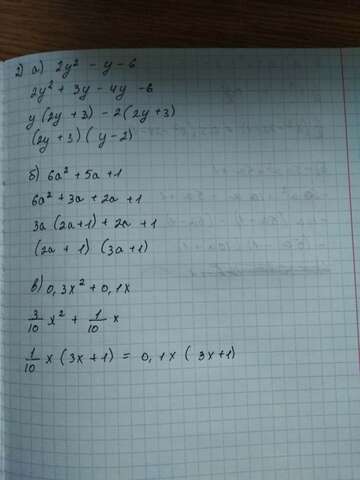 2) а) 2y² - y - 6
2y² + 3y - 4y - 6
y (2y + 3) - 2 (2y + 3)
(2y + 3) (y - 2)
б) 6a² + 5a + 1
6a² + 3a + 2a + 1
3a (2a+1) + 2a + 1
(2a + 1) (3a+1)
в) 0,3x² + 0,1x
3/10 x² + 1/10 x
1/10 x (3x + 1) = 0,1x (3x+1)